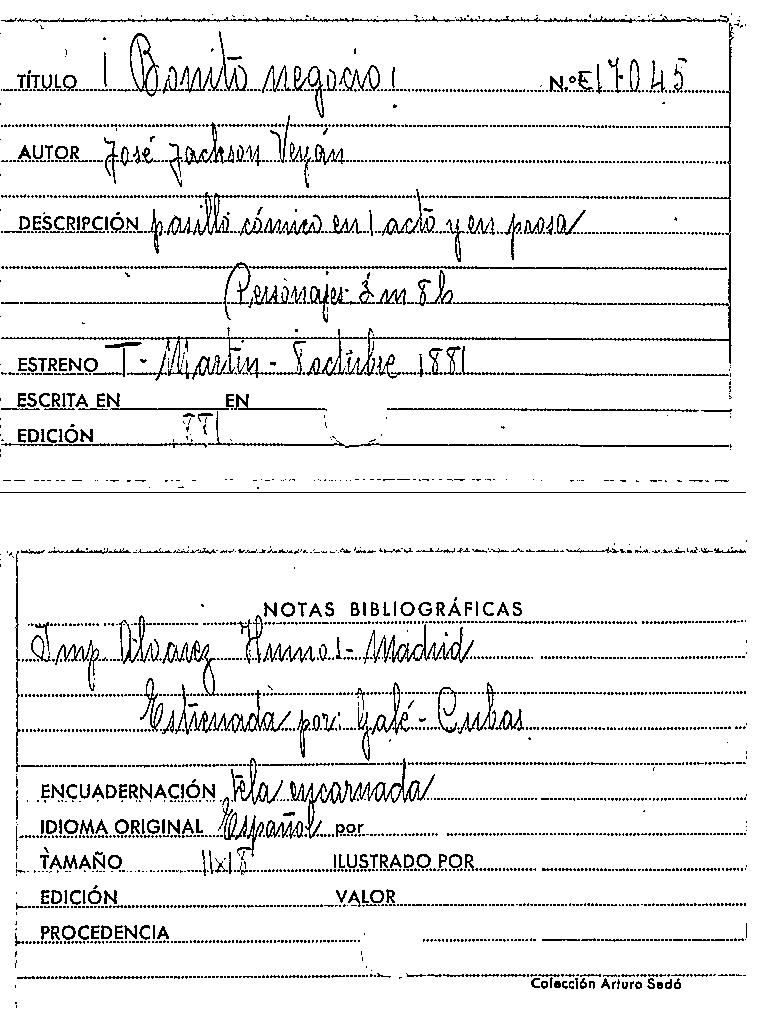 TÍTULO ¡Bonito negocio! N.ºE 17045
AUTOR José Jackson Veyán
DESCRIPCIÓN pasillo cómico en 1 acto y en prosa
Personajes 3 m 8 h
ESTRENO T- Martin - 8 octubre 1881
ESCRITA EN EN
EDICIÓN 1881
NOTAS BIBLIOGRÁFICAS
Imp Alvarez Hermnos - Madrid
Estrenada por: Galé - Cubas
ENCUADERNACIÓN tela encarnada
IDIOMA ORIGINAL Español por
TAMAÑO 11x18 ILUSTRADO POR
EDICIÓN VALOR
PROCEDENCIA
Colección Arturo Sedó